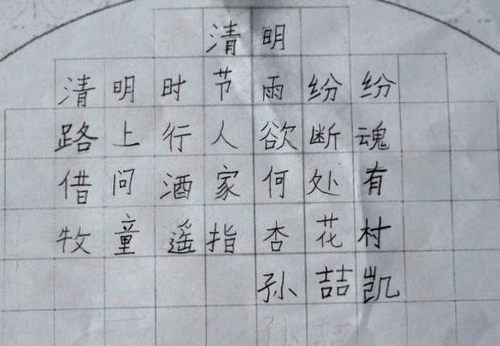 清明
清明时节雨纷纷
路上行人欲断魂
借问酒家何处有
牧童遥指杏花村
孙喆凯